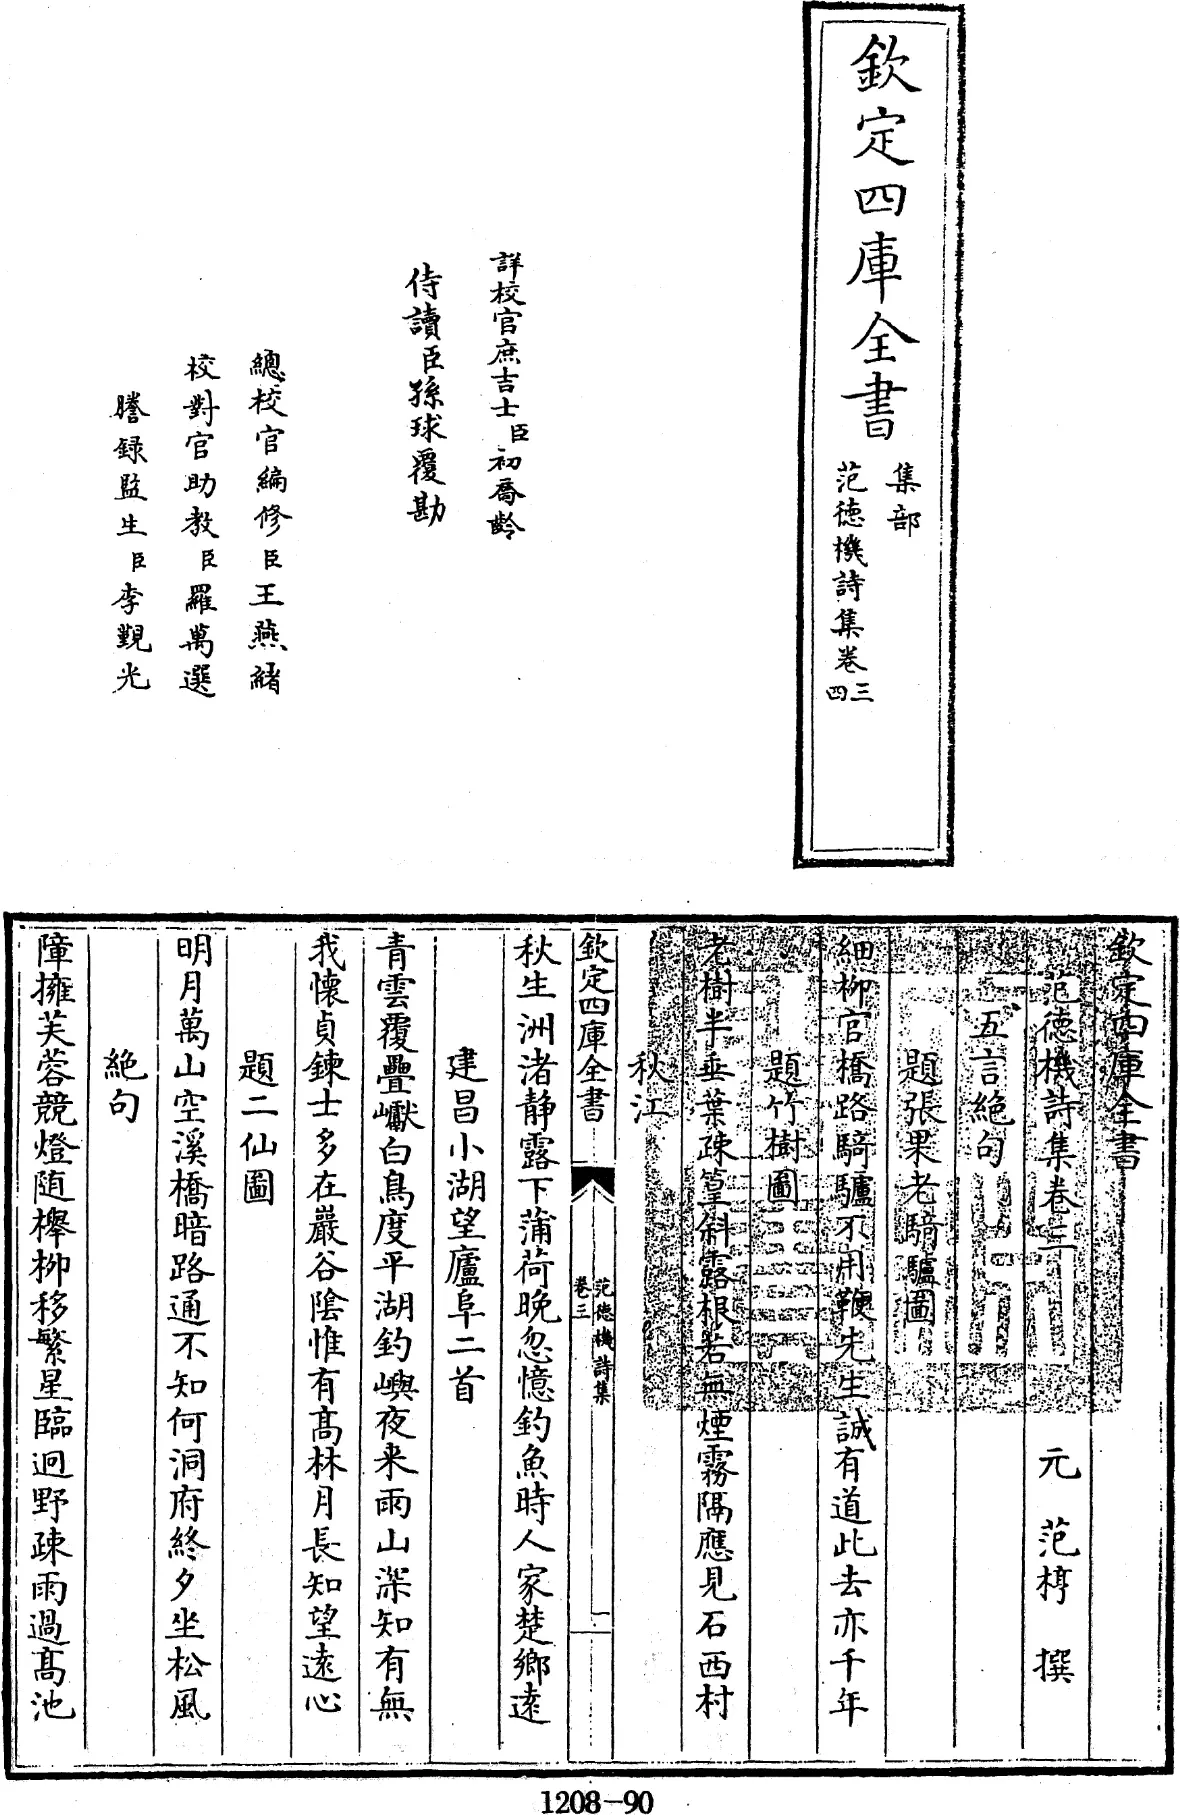 欽定四庫全書
集部
范德機詩集卷三
四
詳校官庶吉士臣初喬齡
侍讀臣孫球覆勘
總校官編修臣王燕緒
校對官助教臣羅萬選
謄録監生臣李覲光
欽定四庫全書
范德機詩集卷三
元 范梈 撰
五言絶句
題張果老騎驢圖
細柳官橋路騎驢不用鞭先生誠有道此去亦千年
題竹樹圖
老樹半垂葉疎篁斜露根若無煙霧隔應見石西村
秋江
欽定四庫全書
范德機詩集
卷三
一
秋生洲渚静露下蒲荷晚忽憶釣魚時人家楚鄉逺
建昌小湖望廬阜二首
青雲覆疊巘白鳥度平湖釣嶼夜来雨山深知有無
我懷貞鍊士多在巖谷陰惟有髙林月長知望逺心
題二仙圖
明月萬山空溪橋暗路通不知何洞府終夕坐松風
絶句
障擁芙蓉競燈随櫸柳移繁星臨迥野疎雨過髙池
1208-90